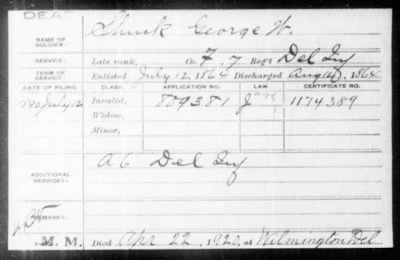 DEAD
NAME OF SOLDIER: Shuck George W.
SERVICE: Late rank, Co. F, 7 Reg't Del Inf
TERM OF SERVICE: Enlisted July 12, 1864 Discharged Aug 12, 1864
DATE OF FILING. CLASS. APPLICATION NO. LAW. CERTIFICATE NO.
1890 July 12 Invalid, 879381 J 1174389
Widow,
Minor,
ADDITIONAL SERVICES: A 6 Del Inf
REMARKS:
M. M. Died Apr 22, 1920, at Wilmington Del